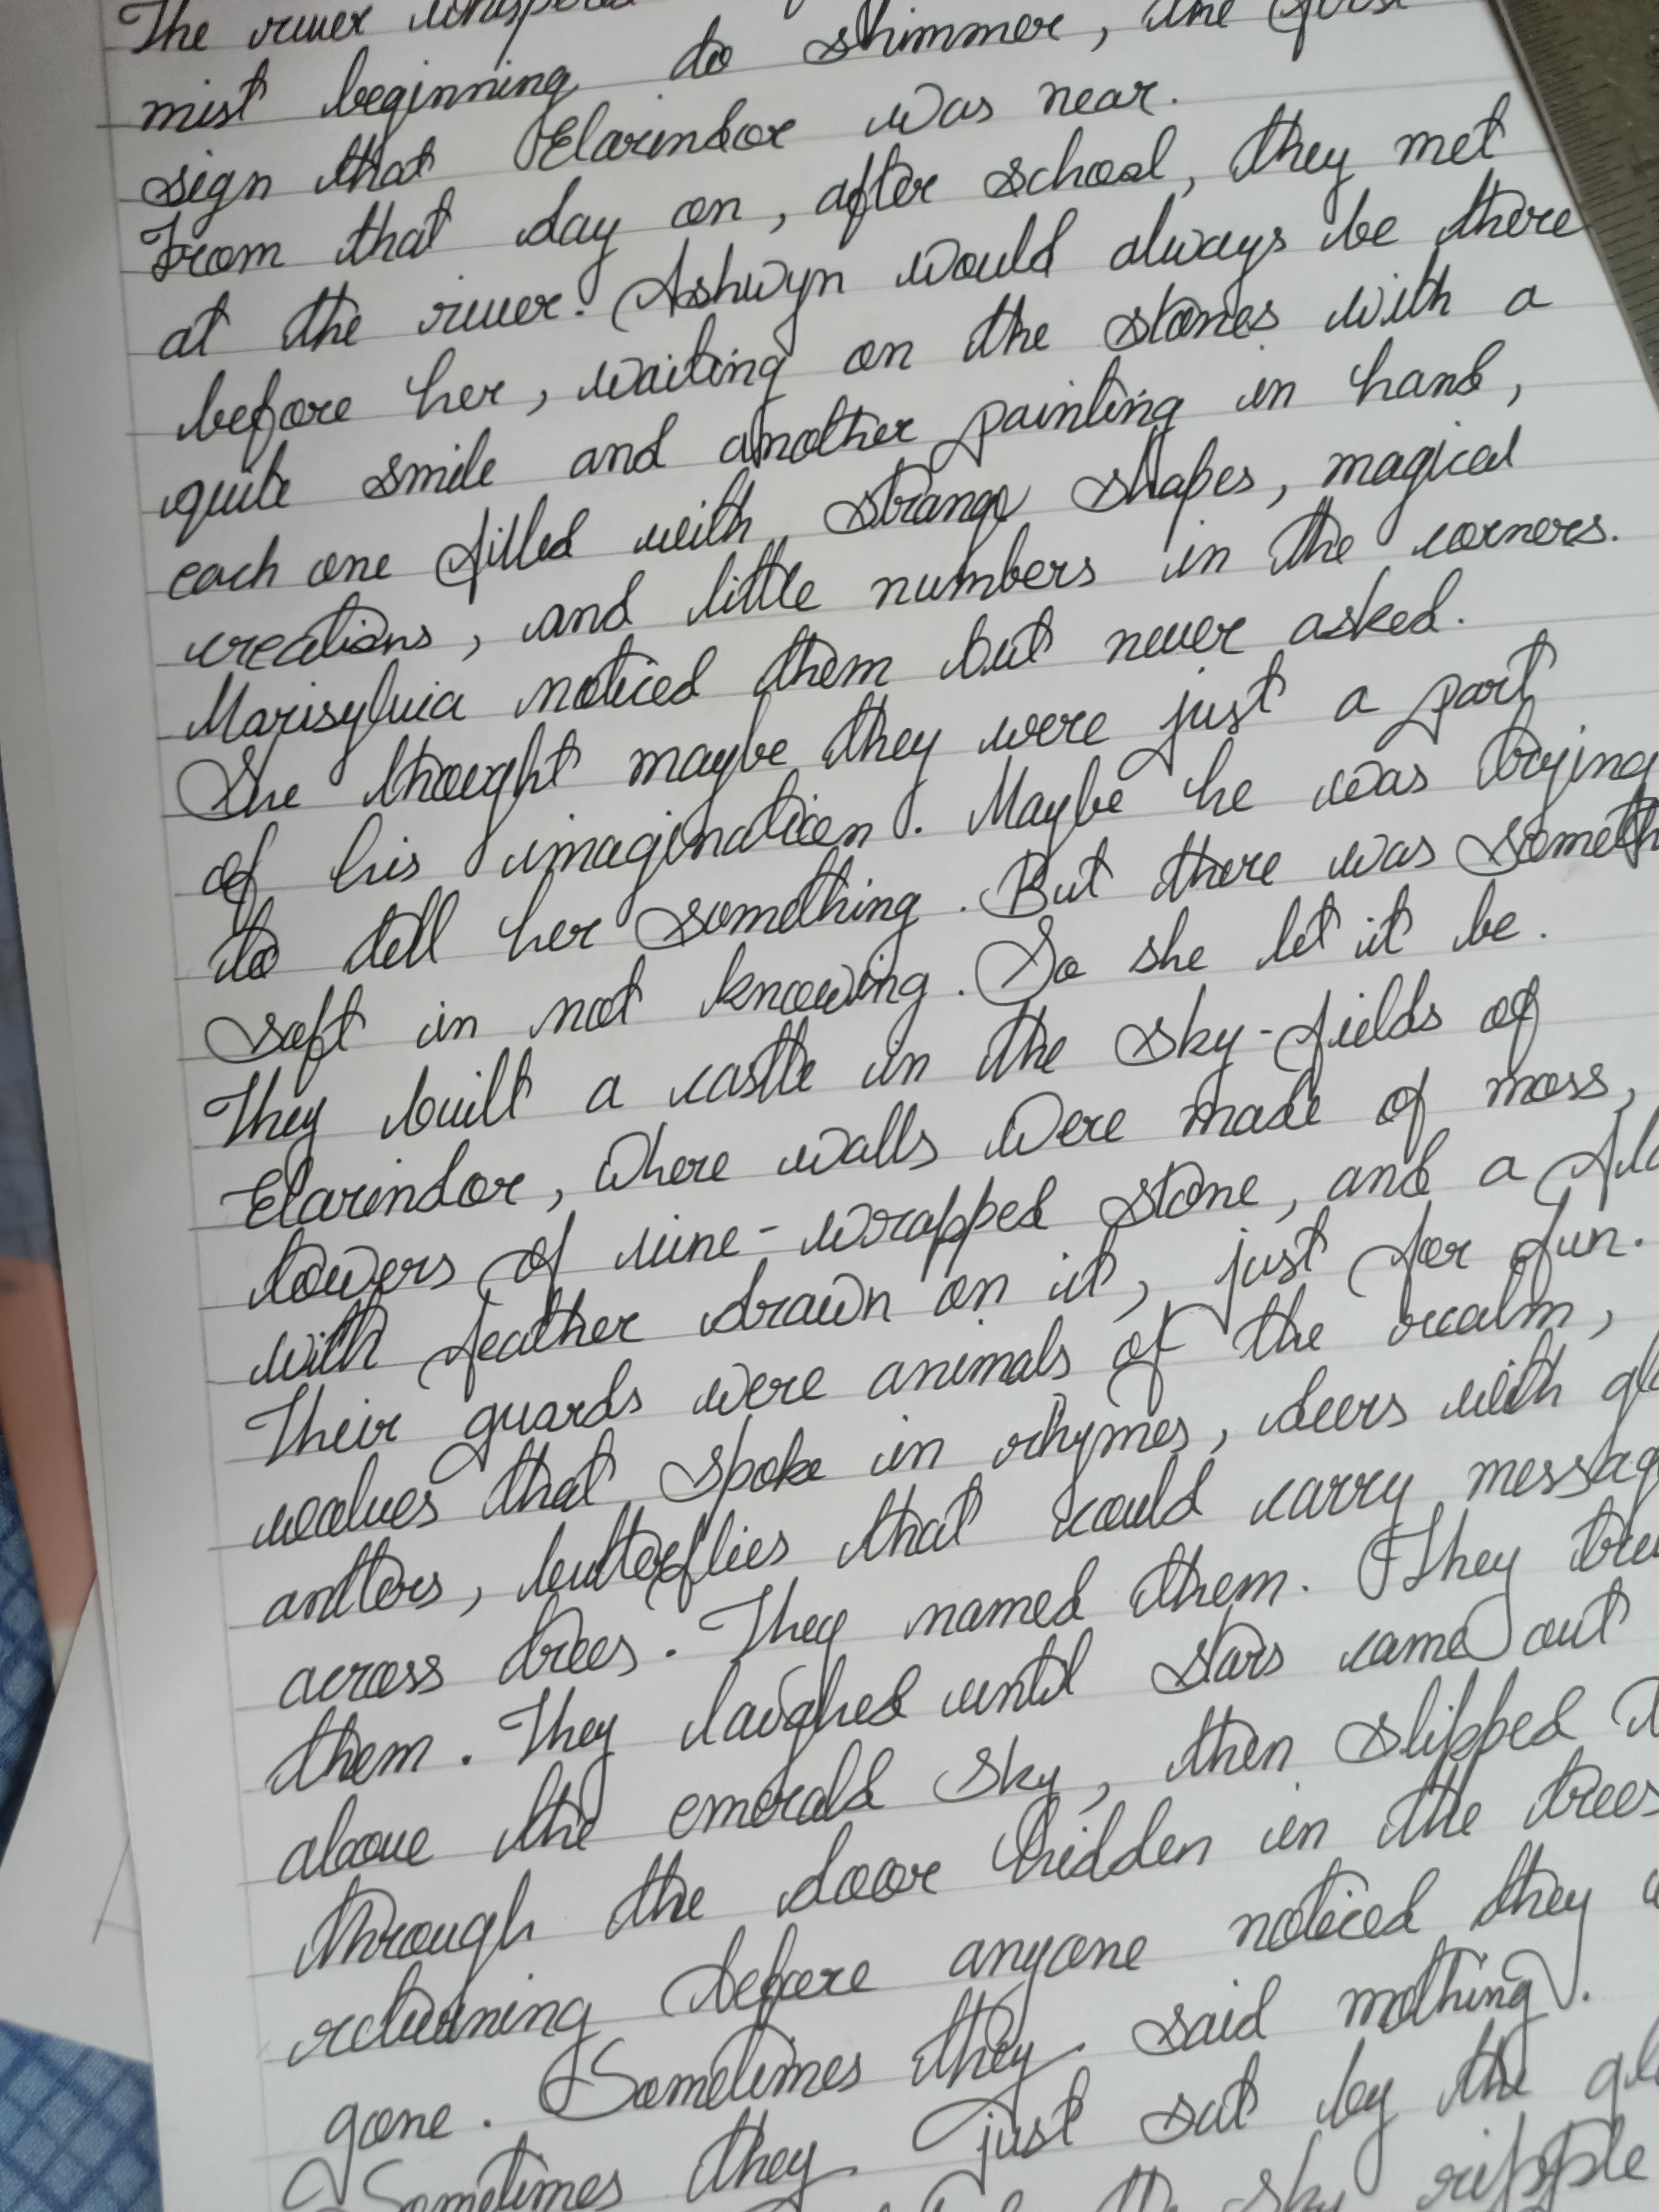 The river whispered
mist beginning to shimmer, the first
sign that Elarindor was near.
From that day on, after school, they met
at the river. Ashwyn would always be there
before her, waiting on the stones with a
quite smile and another painting in hand,
each one filled with strange shapes, magical
creations, and little numbers in the corners.
Marisylvia noticed them but never asked.
She thought maybe they were just a part
of his imagination. Maybe he was trying
to tell her something. But there was someth
soft in not knowing. So she let it be.
They built a castle in the sky-fields of
Elarindor, where walls were made of moss,
towers of vine-wrapped stone, and a
with feather drawn on it, just for fun.
Their guards were animals of the realm,
wolves that spoke in rhymes, deers with
antlers, butterflies that could carry messag
across trees. They named them. They
them. They laughed until stars came out
above the emerald sky, then slipped
through the door hidden in the trees
returning before anyone noticed they
gone. Sometimes they said nothing.
Sometimes they just sat by the
the sky ripple